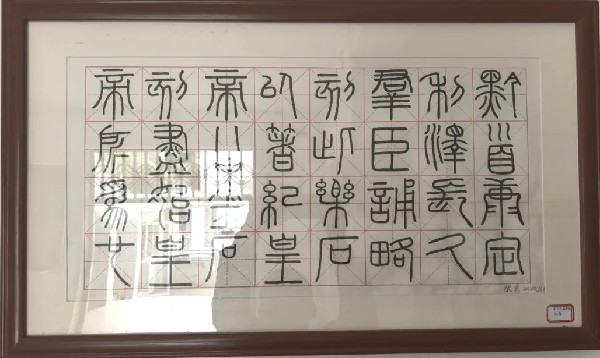 黔首康定
利澤長久
羣臣誦略
刻此樂石
以著紀皇
帝石
刻盡始皇
帝所爲也